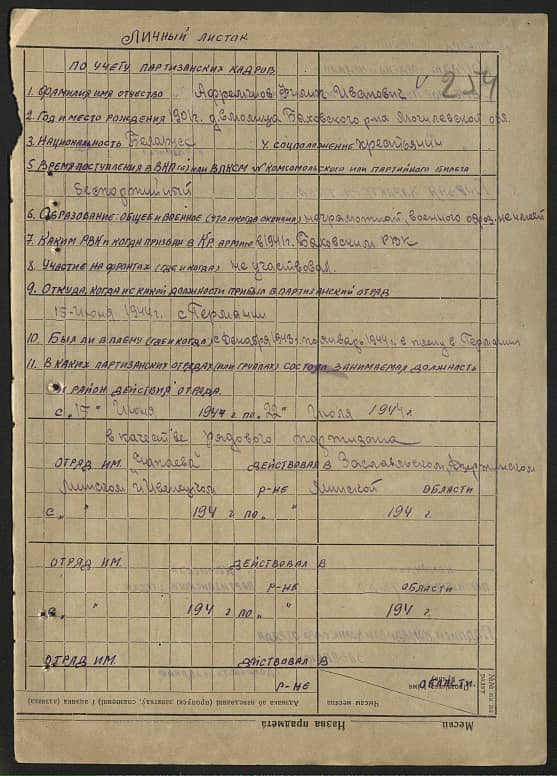 Личный листок
по учету партизанских кадров
214
1. Фамилия имя отчество Афремчиов Филип Иванович
2. Год и место рождения 1901 г. д. Смолица Быховского р-на Могилевской обл.
3. Национальность Беларусс X соцположение крестьянин
5. Время поступления в ВКП(б) или ВЛКСМ № комсомольского или партийного билета
Беспартийный
6. Образование: общее и военное (что и когда окончил) неграмотной военного образ. не имеет
7. Каким РВК и когда призван в Кр. армию в 1941 г. Быховским РВК
8. Участие на фронтах (где и когда) не участвовал.
9. Откуда, когда и с какой должности прибыл в партизанский отряд
15-июня 1944 г. с Германии
10. Были ли в плену (где и когда) с Декабря 1943 г. по январь 1944 г. в плену в Германии
11. В каких партизанских отрядах (или группах) состоял занимаемая должность
и район действия отряда.
с „17" Июня 1944 г по „22" Июля 1944 г.
в качестве рядового партизана
Отряд им. Чапаева" действовал в Заславльском, Дзержинском
Минском и Ивенецком р-не Минской области
с „ " 194 г по „ " 194 г.
Отряд им. действовал в
р-не области
с „ " 194 г по „ " 194 г.
Отряд им. действовал в
р-не области.
Числы месяца
Адзнака аб наведванні (пропуск) занятка, спазненні) і ацэнка (адзнака)
Месяц
Назва прадмета